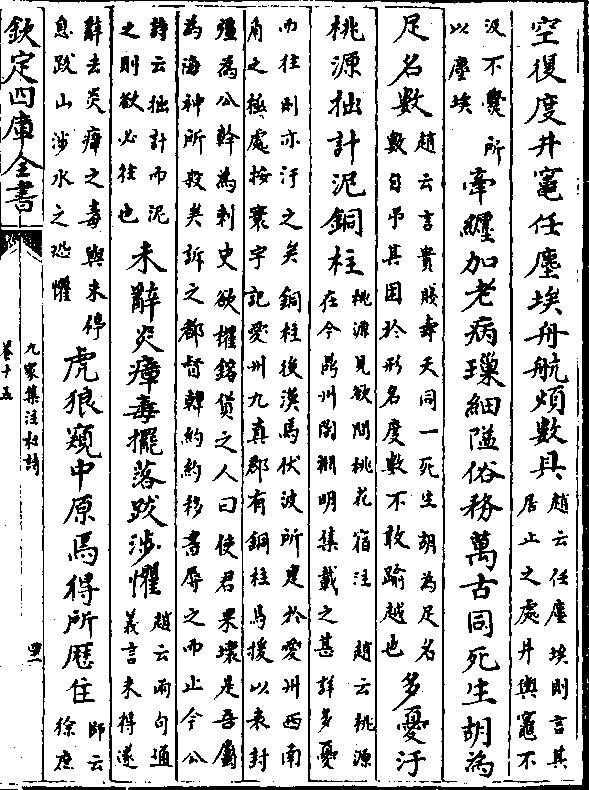 空復度井竈任塵埃舟航煩數具
趙云任塵埃則言其
居止之處井與竈不
汲不爨所
以塵埃
牽纒加老病瑣細隘俗務萬古同死生胡為
足名數
趙云言貴賤壽夭同一死生胡為足名
數自弔其困於形名度數不敢踰越也
多憂汙
桃源拙計泥銅柱
桃源見欲問桃花宿注 趙云桃源
在今鼎州陶淵明集載之甚詳多憂
而往則亦汙之矣銅柱後漢馬伏波所建於愛州西南
角之極處按寰宇記愛州九真郡有銅柱馬援以表封
疆為公幹為刺史欲摧鎔貨之人曰使君果壞是吾屬
為海神所殺矣訴之都督韓約約移書辱之而止今公
詩云拙計而泥
之則欲必往也
未辭炎瘴毒擺落跋涉懼
趙云兩句通
義言未得遂
辭去炎瘴之毒與未停
息跋山涉水之恐懼
虎狼窺中原焉得所歷住
師云
徐庶
欽定四庫全書
九家集注杜詩
卷十五